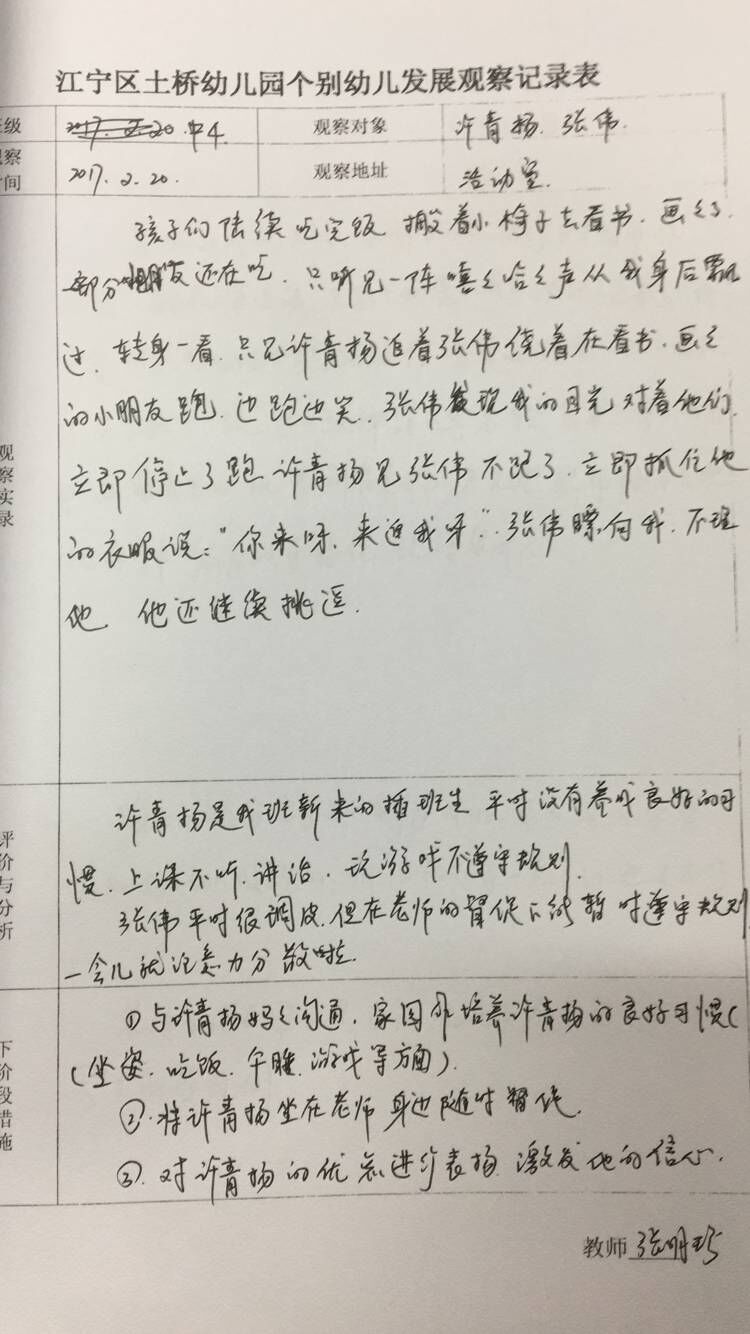 江宁区土桥幼儿园个别幼儿发展观察记录表
班级 2017.2.20 中4 观察对象 许青扬、张伟
观察时间 2017.2.20. 观察地址 活动室
孩子们陆续吃完饭 搬着小椅子去看书、画画,
部分朋友还在吃、只听见一阵嘻嘻哈哈声从我身后飘
过、转身一看、只见许青扬追着张伟绕着在看书、画画
的小朋友跑、边跑边笑、张伟发现我的目光对着他们、
立即停止了跑 许青扬见张伟不跑了、立即抓住他
的衣服说:“你来呀、来追我呀”、张伟瞟向我、不理
他 他还继续挑逗.
观察实录
许青扬是我班新来的插班生 平时没有养成良好的习
惯、上课不听、讲话、玩游戏不遵守规则.
张伟平时很调皮、但在老师的督促下能暂时遵守规则
一会儿就注意力分散啦.
评价与分析
①与许青扬妈妈沟通、家园外培养许青扬的良好习惯(
(坐姿、吃饭、午睡、游戏等方面).
②.将许青扬坐在老师身边随时督促.
③.对许青扬的优点进行表扬 激发他的信心.
下阶段措施
教师 张明巧